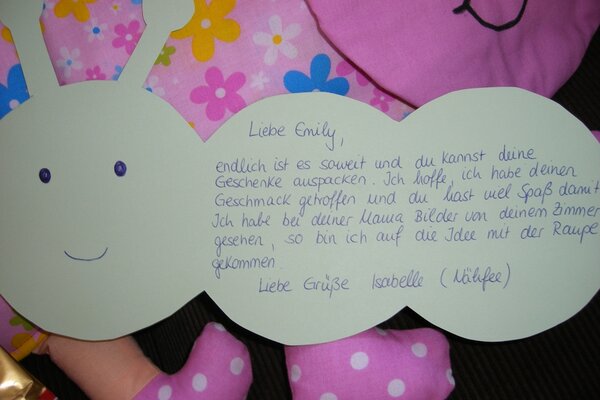 Liebe Emily,
endlich ist es soweit und du kannst deine
Geschenke auspacken. Ich hoffe, ich habe deinen
Geschmack getroffen und du hast viel Spaß damit
Ich habe bei deiner Mama Bilder von deinem Zimmer
gesehen, so bin ich auf die Idee mit der Raupe
gekommen.
Liebe Grüße Isabelle (Nähfee)